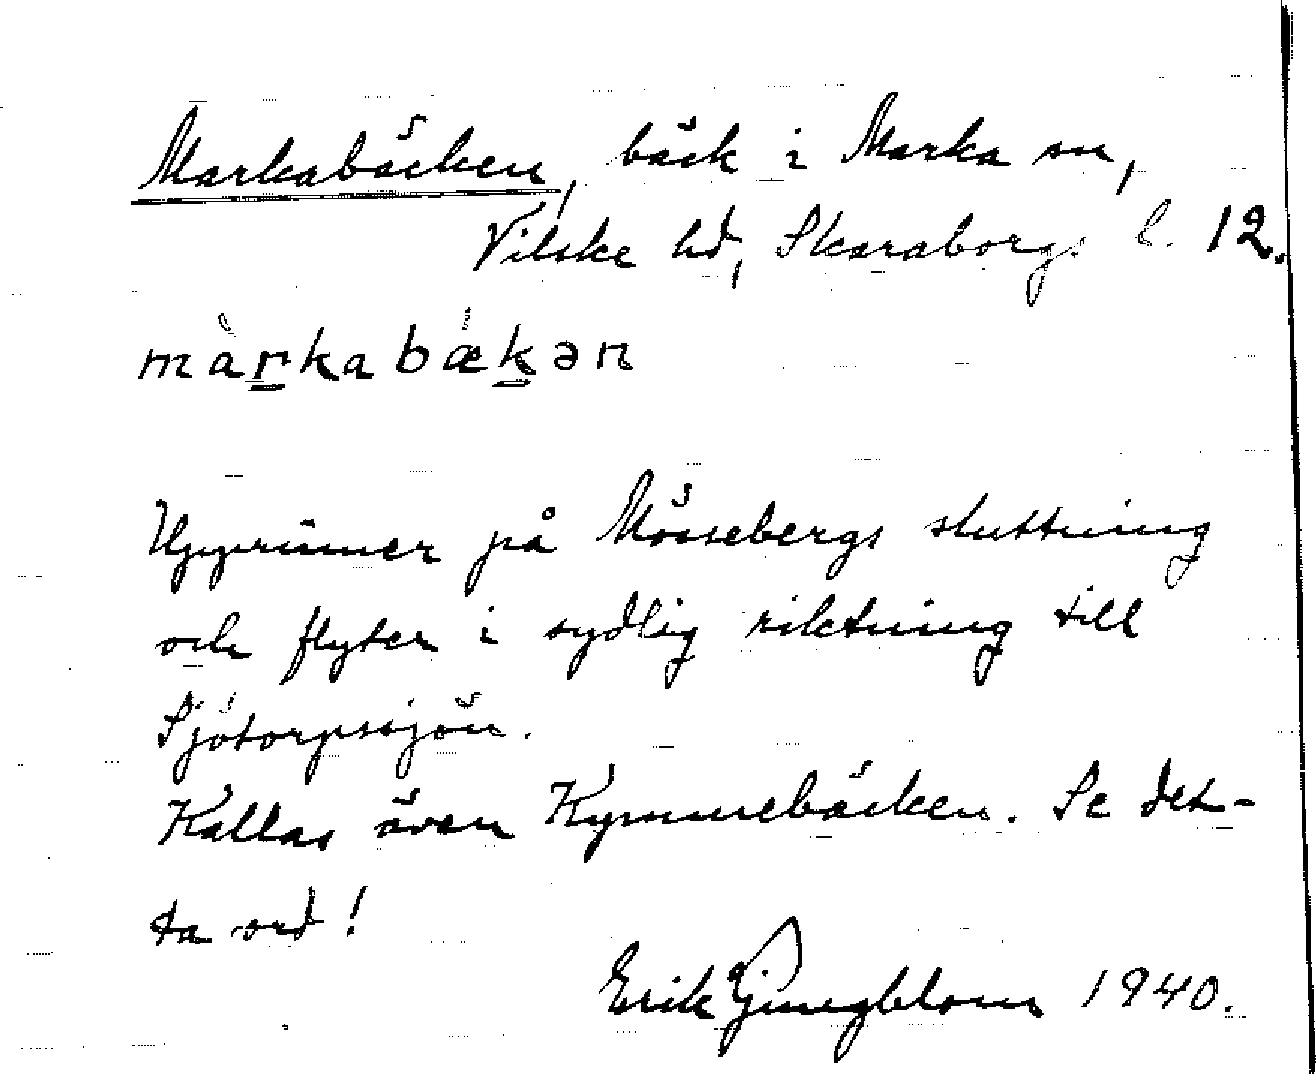 Markabäcken, bäck i Marka sn,
Vilske hd, Skaraborgs l. 12.
màrkabǽkən
Upprinner på Mössebergs sluttning
och flyter i sydlig riktning till
Sjötorpssjön.
Kallas även Kymmebäcken. Se det-
ta ord!
Erik Ljungblom 1940.